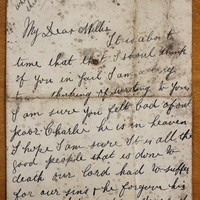 My Dear Millie
It is about
time that I should think
of you in fact I am
thinking of writing to you
I am sure you felt bad about
poor Charlie he is in heaven
I hope I am sure It is all the
good people that is done to
death our lord had to suffer
for our sins & he forgave his